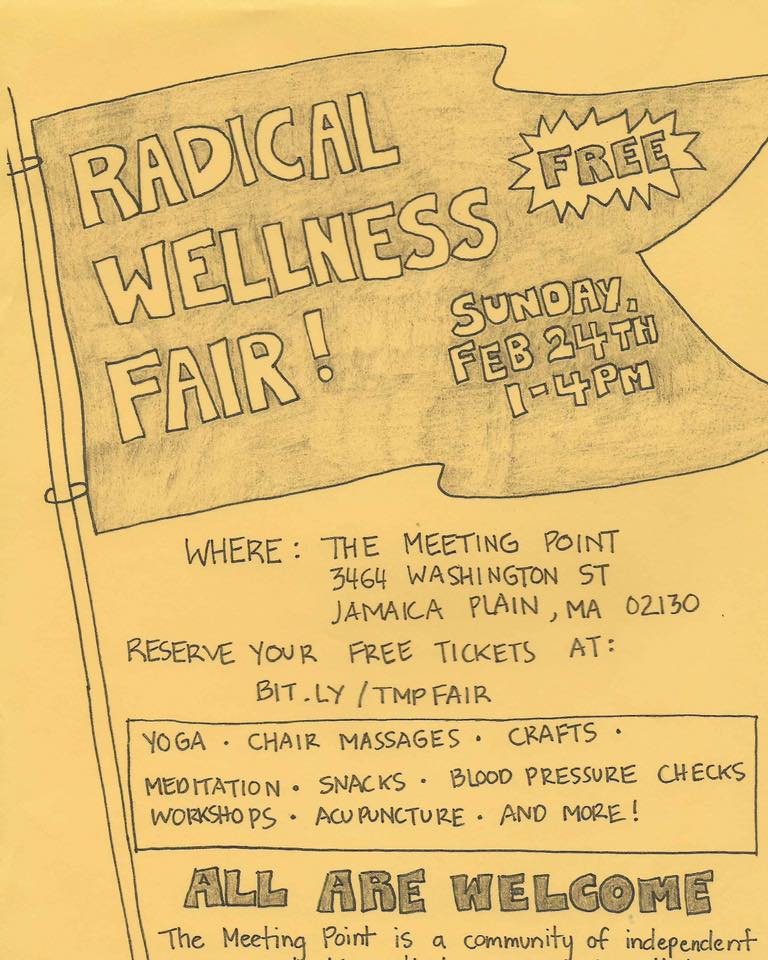 RADICAL
WELLNESS
FAIR!
FREE
SUNDAY,
FEB 24TH
1-4PM
WHERE: THE MEETING POINT
3464 WASHINGTON ST
JAMAICA PLAIN, MA 02130
RESERVE YOUR FREE TICKETS AT:
BIT.LY/TMPFAIR
YOGA · CHAIR MASSAGES · CRAFTS ·
MEDITATION · SNACKS · BLOOD PRESSURE CHECKS
WORKSHOPS · ACUPUNCTURE · AND MORE!
ALL ARE WELCOME
The Meeting Point is a community of independent